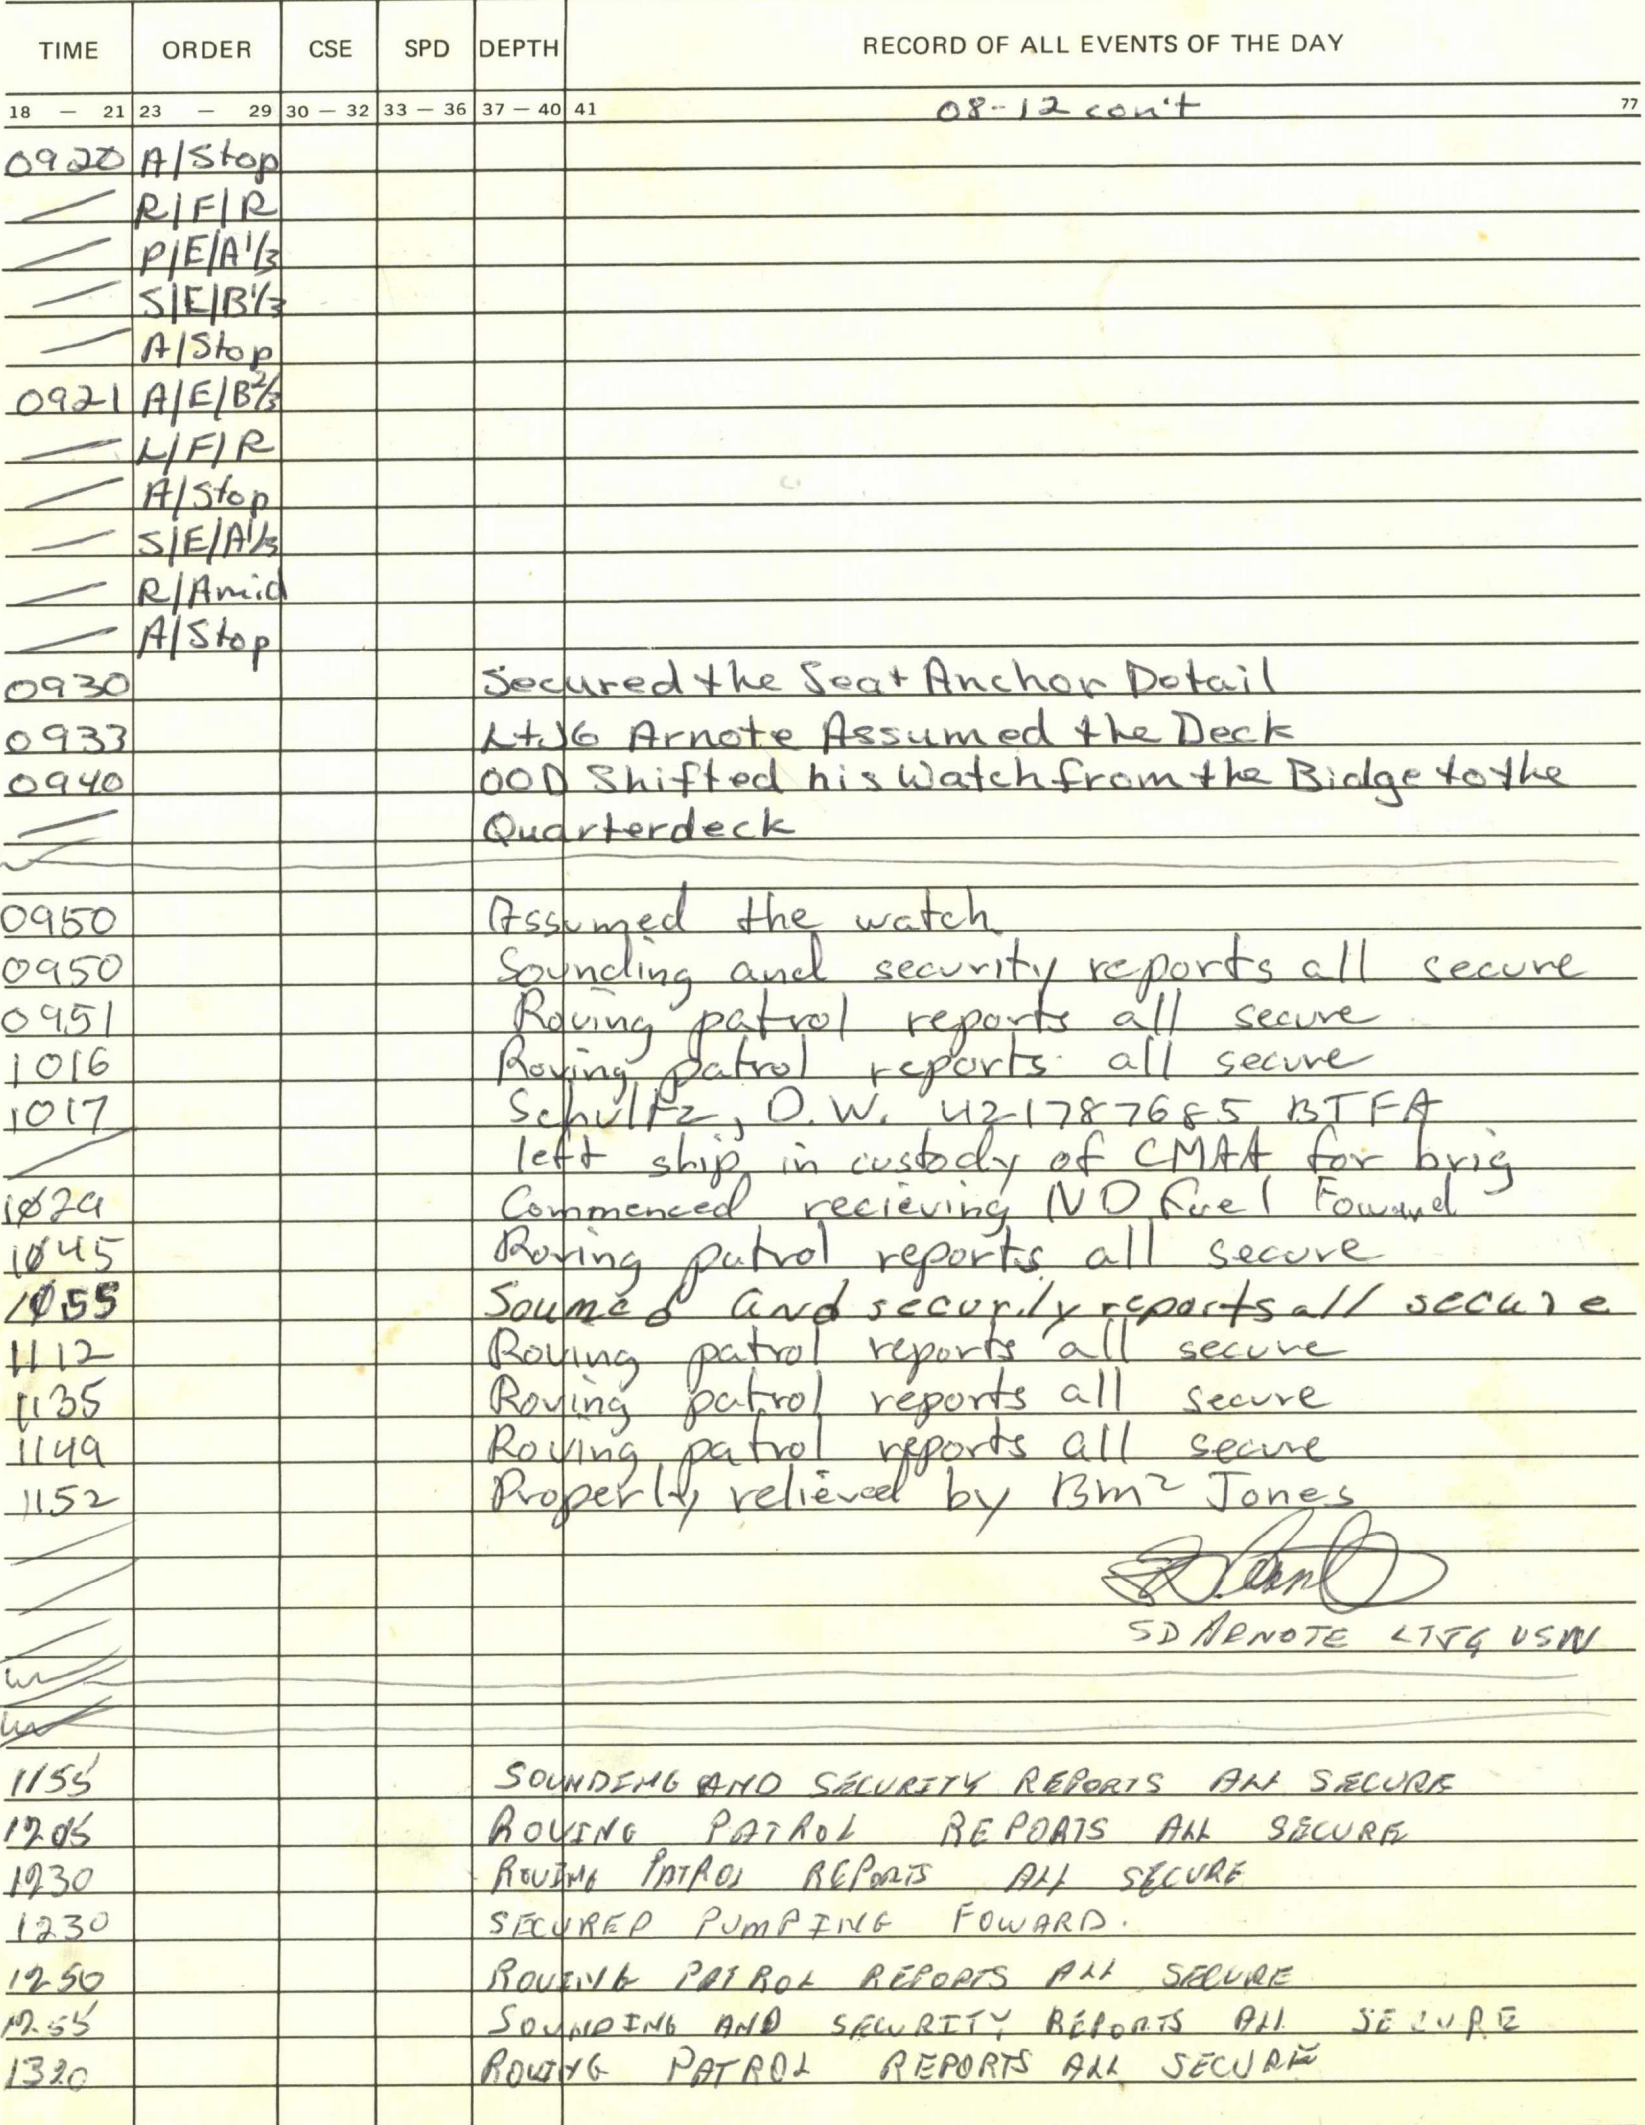 TIME ORDER CSE SPD DEPTH RECORD OF ALL EVENTS OF THE DAY
18 — 21 23 — 29 30 — 32 33 — 36 37 — 40 41 08-12 con't 77
0920 A/Stop
R/F/R
P/E/A 1/3
S/E/B 1/3
A/Stop
0921 A/E/B 2/3
L/F/R
A/Stop
S/E/A 1/3
R/Amid
A/Stop
0930 Secured the Sea + Anchor Detail
0933 LtJG Arnote Assumed the Deck
0940 OOD Shifted his Watch from the Bidge to the
Quarterdeck
0950 Assumed the watch
0950 Sounding and security reports all secure
0951 Roving patrol reports all secure
1016 Roving patrol reports all secure
1017 Schultz, D.W. 421787685 BTFA
left ship in custody of CMAA for brig
1029 Commenced recieving ND fuel Foward
1045 Roving patrol reports all secure
1055 and security reports all secure
1112 Roving patrol reports all secure
1135 Roving patrol reports all secure
1149 Roving patrol reports all secure
1152 Properly relieved by BM2 Jones
SD ARNOTE LTJG USN
1155 SOUNDING AND SECURITY REPORTS ALL SECURE
1205 ROVING PATROL REPORTS ALL SECURE
1230 ROVING PATROL REPORTS ALL SECURE
1230 SECURED PUMPING FOWARD.
1250 ROVING PATROL REPORTS ALL SECURE
1255 SOUNDING AND SECURITY REPORTS ALL SECURE
1320 ROVING PATROL REPORTS ALL SECURE